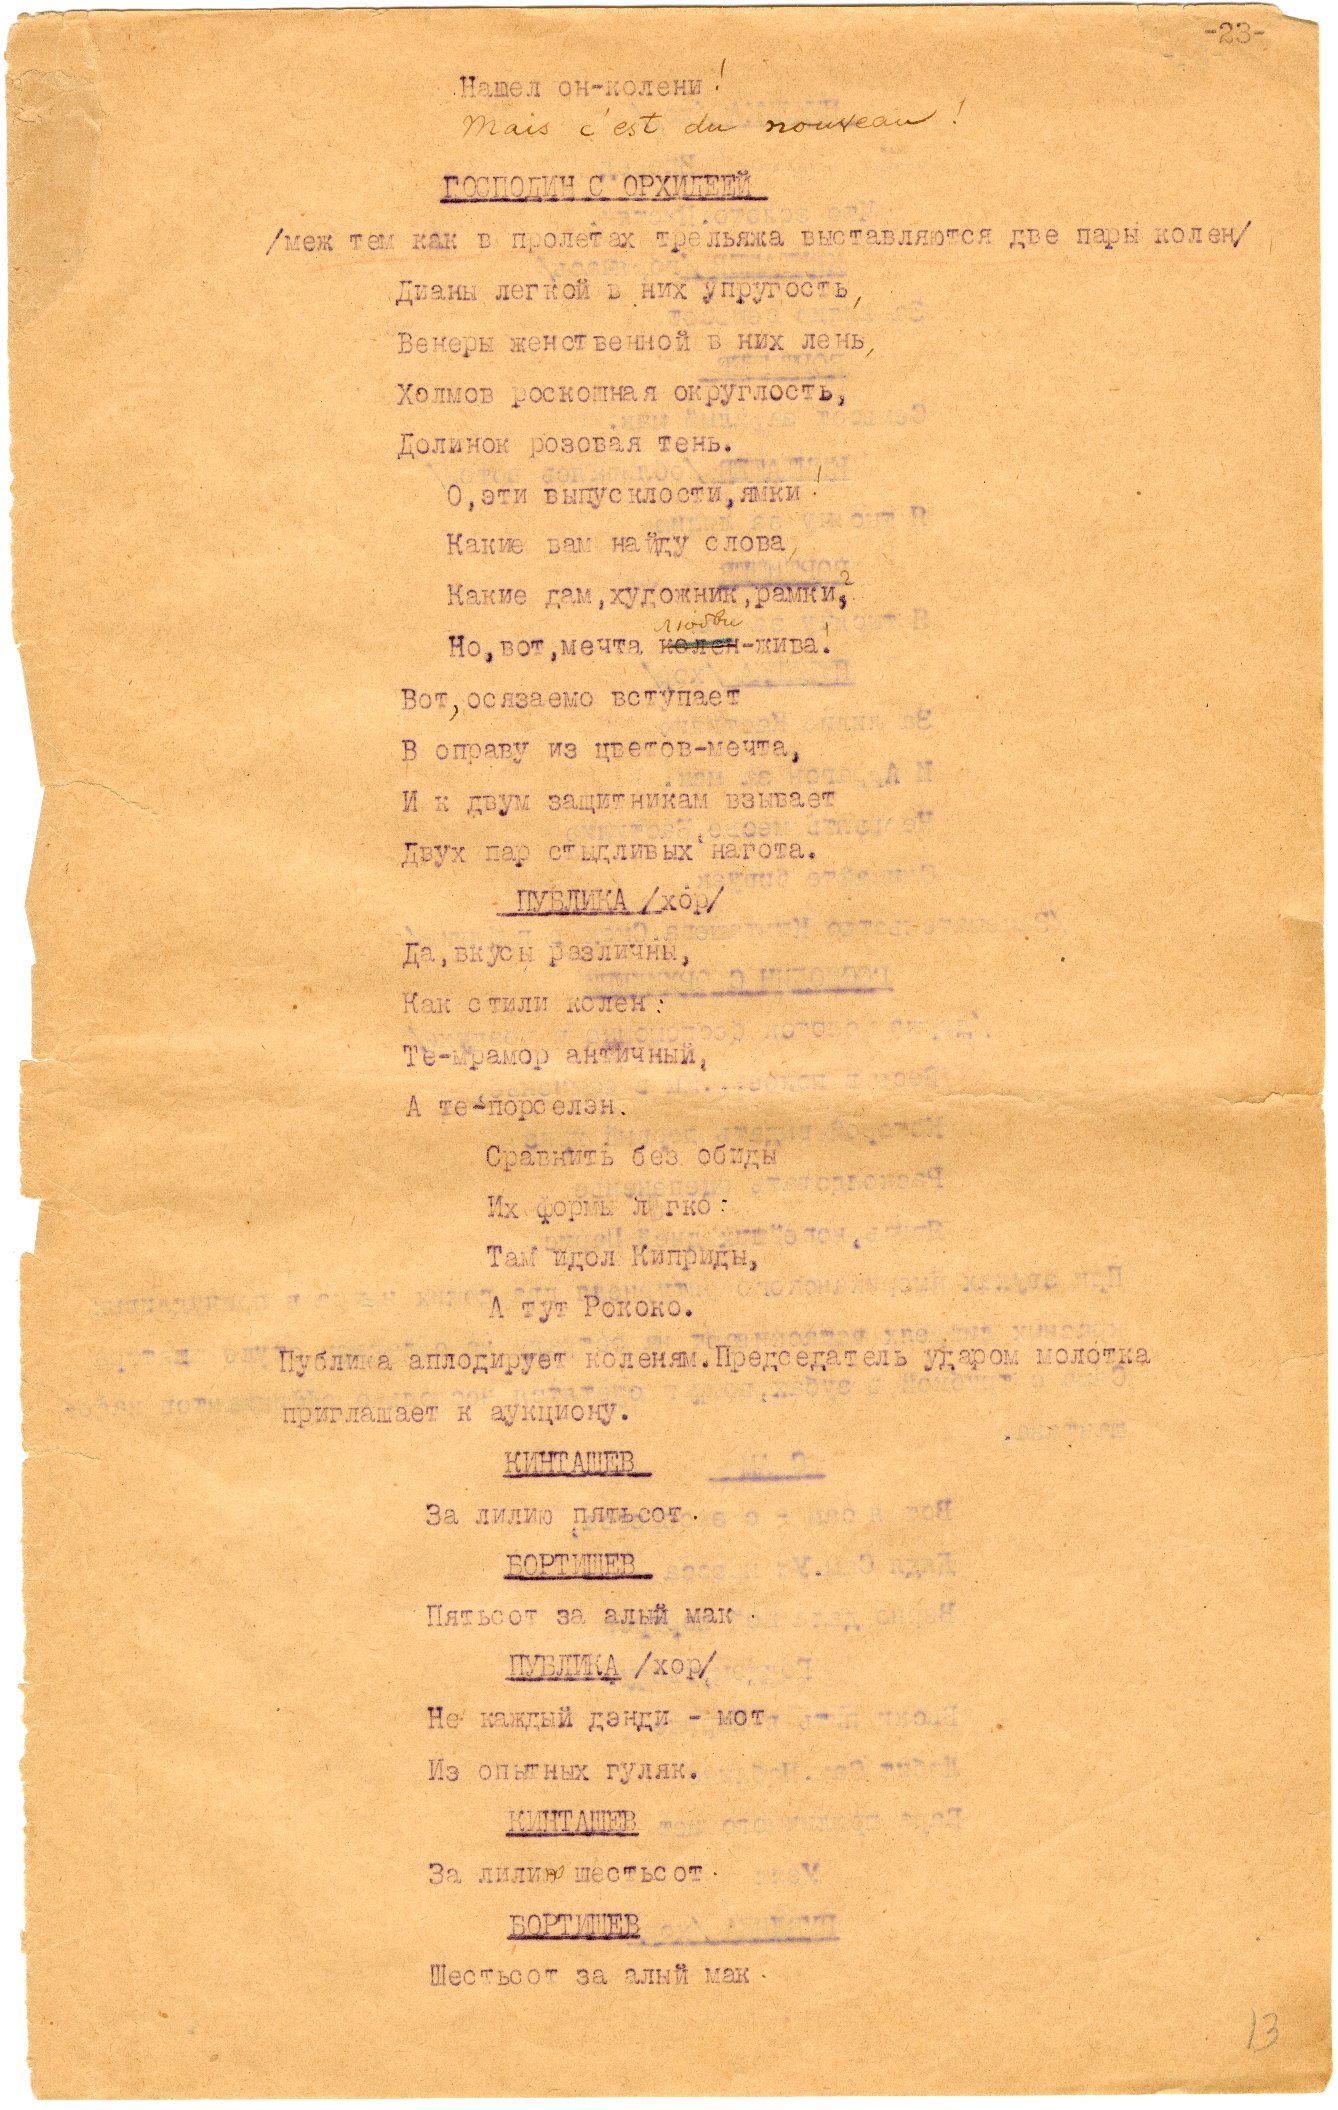 -23-
Нашел он-колени!
Mais c'est du nouveau!
ГОСПОДИН С ОРХИДЕЕЙ
/меж тем как в пролетах трельяжа выставляются две пары колен/
Дианы легкой в них упругость,
Венеры женственной в них лень,
Холмов роскошная округлость,
Долинок розовая тень.
О,эти выпуклости,ямки!
Какие вам найду слова,
Какие дам,художник,рамки,?
любви
Но,вот,мечта колен-жива!
Вот,осязаемо вступает
В оправу из цветов-мечта,
И к двум защитникам взывает
Двух пар стыдливых нагота.
ПУБЛИКА /хор/
Да,вкусы различны,
Как стили колен:
Те-мрамор античный,
А те-порселэн.
Сравнить без обиды
Их формы л гко:
Там идол Киприды,
А тут Рококо.
Публика аплодирует коленям.Председатель ударом молотка
приглашает к аукциону.
КИНТАШЕВ
За лилию пятьсот.
БОРТИШЕВ
Пятьсот за алый мак.
ПУБЛИКА /хор/
Не каждый дэнди - мот
Из опытных гуляк.
КИНТАШЕВ
За лилию шестьсот.
БОРТИШЕВ
Шестьсот за алый мак.
13